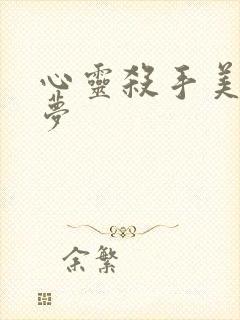 心靈殺手美
夢
余繁